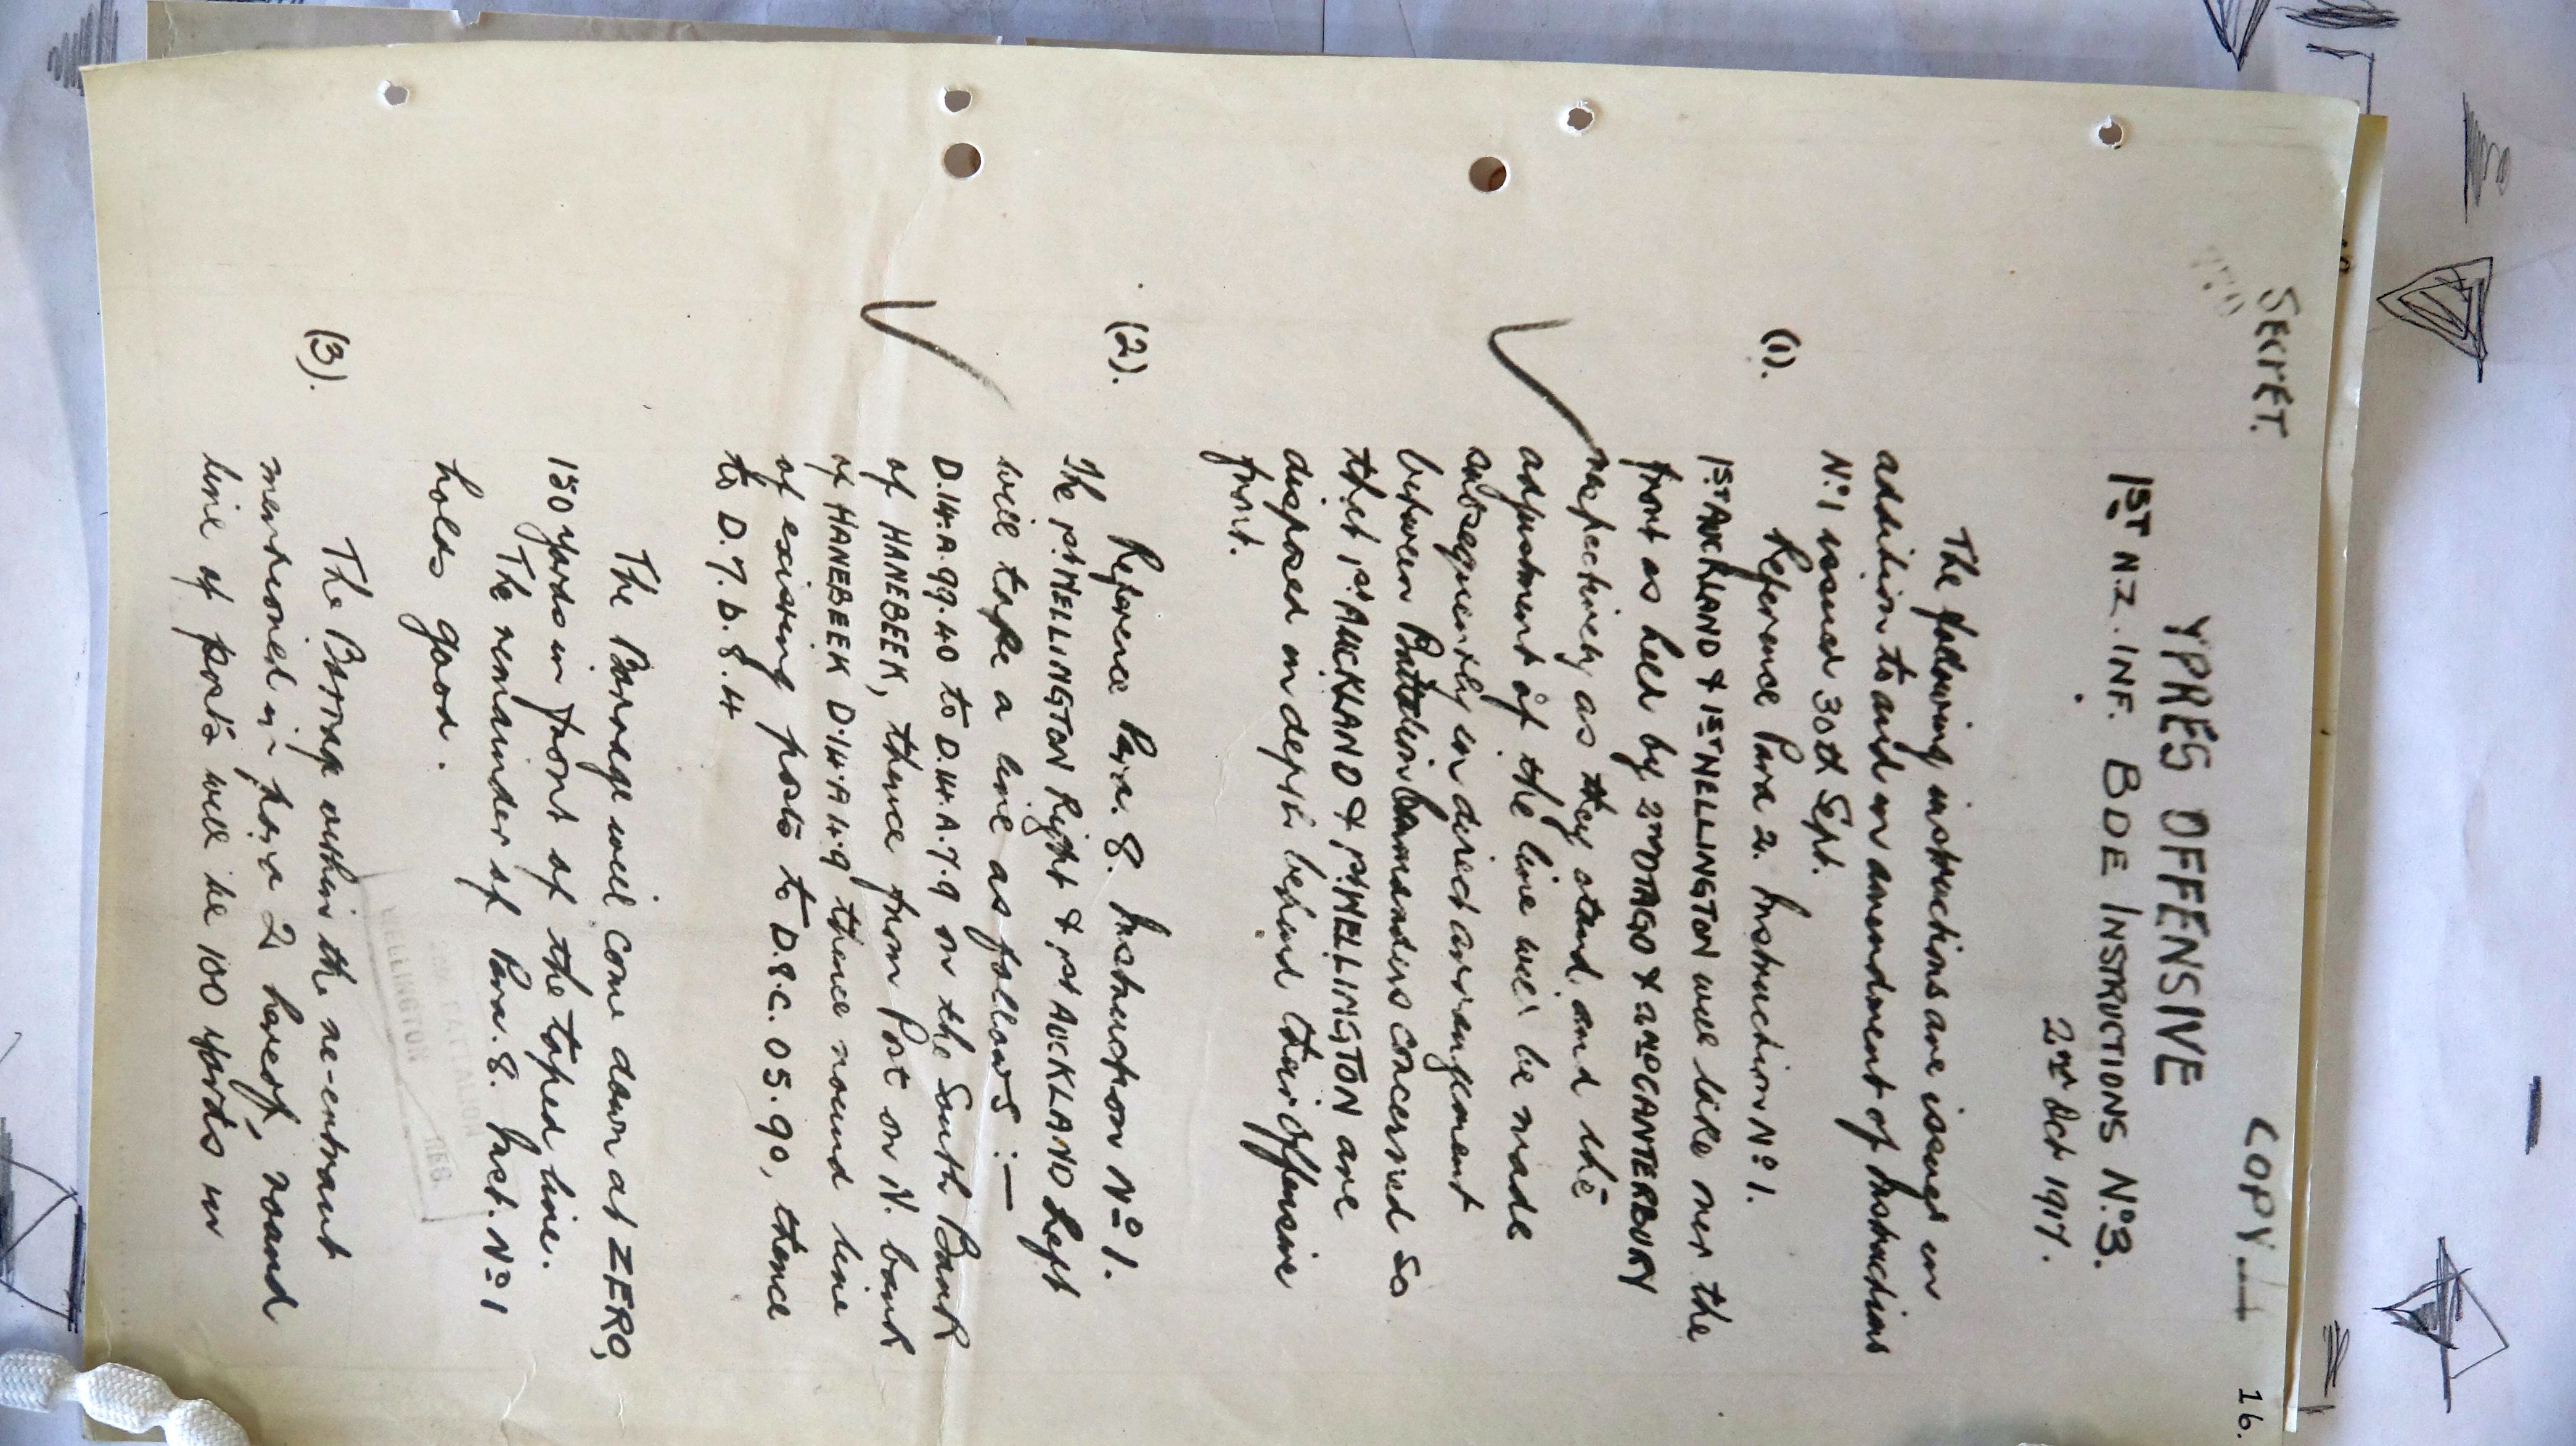 SECRET.
COPY
16.
YPRES OFFENSIVE
1ST N.Z. INF. BDE INSTRUCTIONS No 3.
2nd Oct 1917.
The following instructions are issued in
addition to and in amendment of Instructions
No 1 issued 30th Sept.
(1). Reference Para 2. Instruction No 1.
1ST AUCKLAND & 1ST WELLINGTON will take over the
front as held by 2nd OTAGO & 2ND CANTERBURY
respectively as they stand, and the
adjustment of the line will be made
subsequently in direct arrangement
between Battalion Commanders concerned so
that 1st AUCKLAND & 1st WELLINGTON are
disposed in depth behind their offensive
front.
(2). Reference Para. 8. Instruction No 1.
The 1st WELLINGTON Right & 1st AUCKLAND Left
will tape a line as follows :—
D.14.A.99.40 to D.14.A.7.9 on the South Bank
of HANEBEEK, thence from Post on N. bank
of HANEBEEK D.14.A.4.9 thence round line
of existing posts to D.8.c.05.90, thence
to D.7.b.8.4
The Barrage will come down at ZERO,
150 yards in front of the taped line.
The remainder of Para. 8. Inst. No 1
holds good.
(3). The Barrage within the re-entrant
mentioned in para 2 hereof, round
line of posts will be 100 yards in
WELLINGTON
REG.